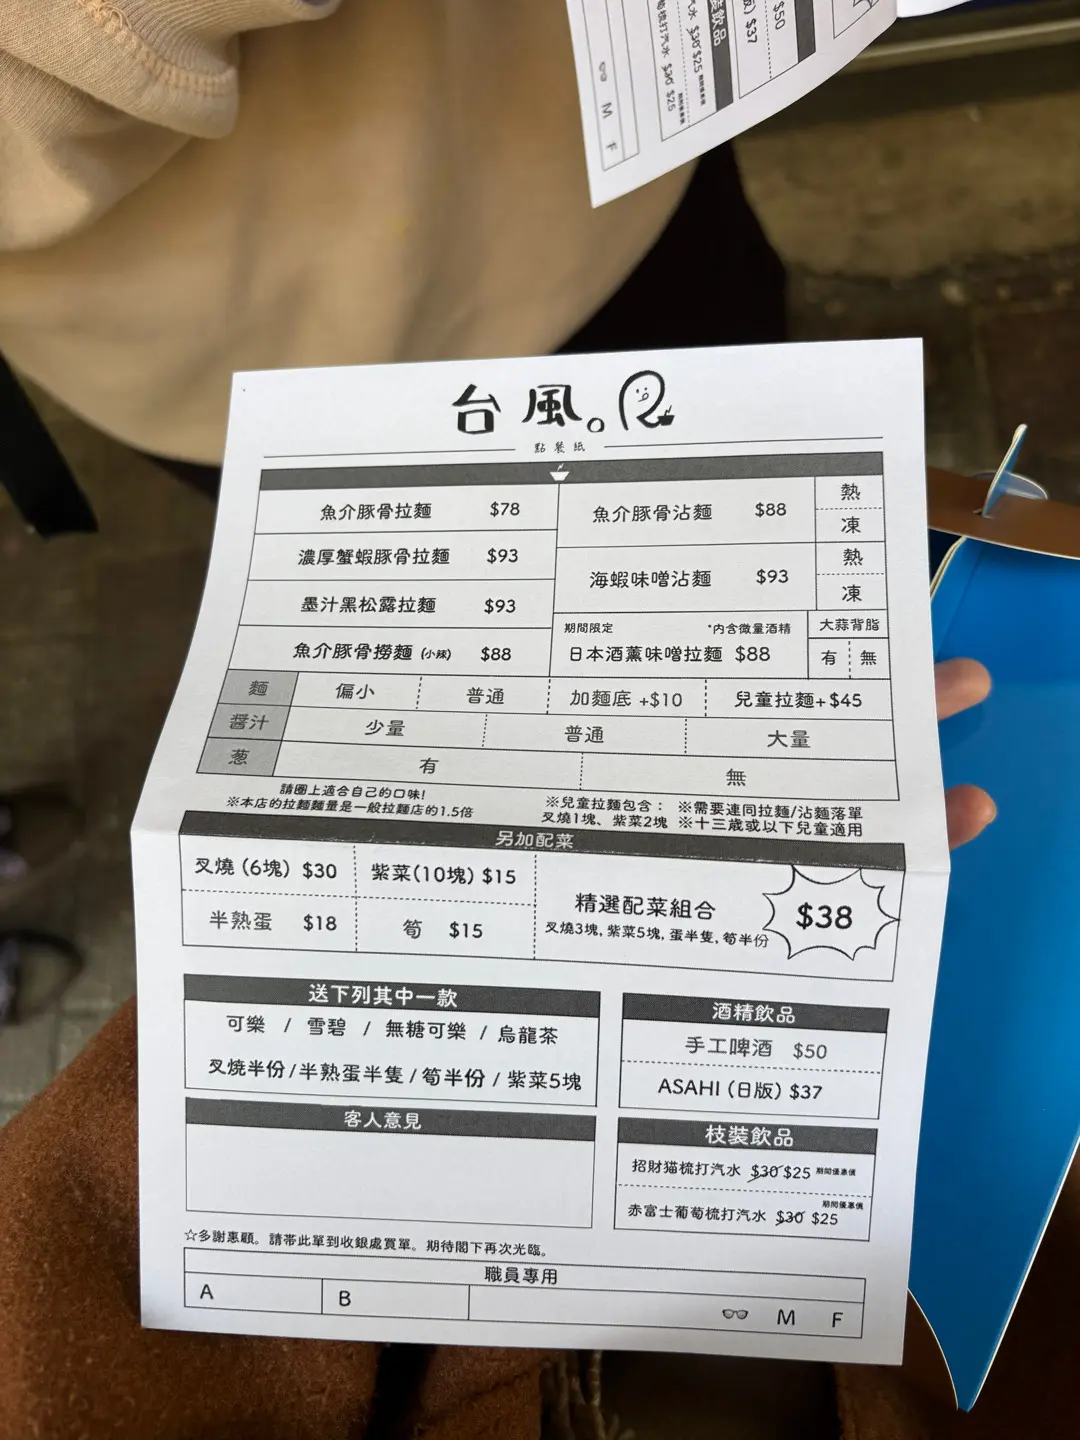 $50
$37
飲品
$30 $25
梳打汽水 $30 $25
M F
台風。
點餐紙
魚介豚骨拉麵 $78
濃厚蟹蝦豚骨拉麵 $93
墨汁黑松露拉麵 $93
魚介豚骨撈麵 (小辣) $88
魚介豚骨沾麵 $88 熱 凍
海蝦味噌沾麵 $93 熱 凍
期間限定 *內含微量酒精
日本酒薰味噌拉麵 $88
大蒜背脂
有 無
麵 偏小 普通 加麵底 +$10 兒童拉麵+$45
醬汁 少量 普通 大量
葱 有 無
請圈上適合自己的口味!
※本店的拉麵麵量是一般拉麵店的1.5倍
※兒童拉麵包含： ※需要連同拉麵/沾麵落單
叉燒1塊、紫菜2塊 ※十三歲或以下兒童適用
另加配菜
叉燒 (6塊) $30 紫菜(10塊) $15
半熟蛋 $18 筍 $15
精選配菜組合 $38
叉燒3塊, 紫菜5塊, 蛋半隻, 筍半份
送下列其中一款
可樂 / 雪碧 / 無糖可樂 / 烏龍茶
叉燒半份/半熟蛋半隻/筍半份/紫菜5塊
客人意見
酒精飲品
手工啤酒 $50
ASAHI (日版) $37
枝裝飲品
招財猫梳打汽水 $30 $25 期間優惠價
期間優惠價
赤富士葡萄梳打汽水 $30 $25
☆多謝惠顧。請帶此單到收銀處買單。期待閣下再次光臨。
職員專用
A B M F